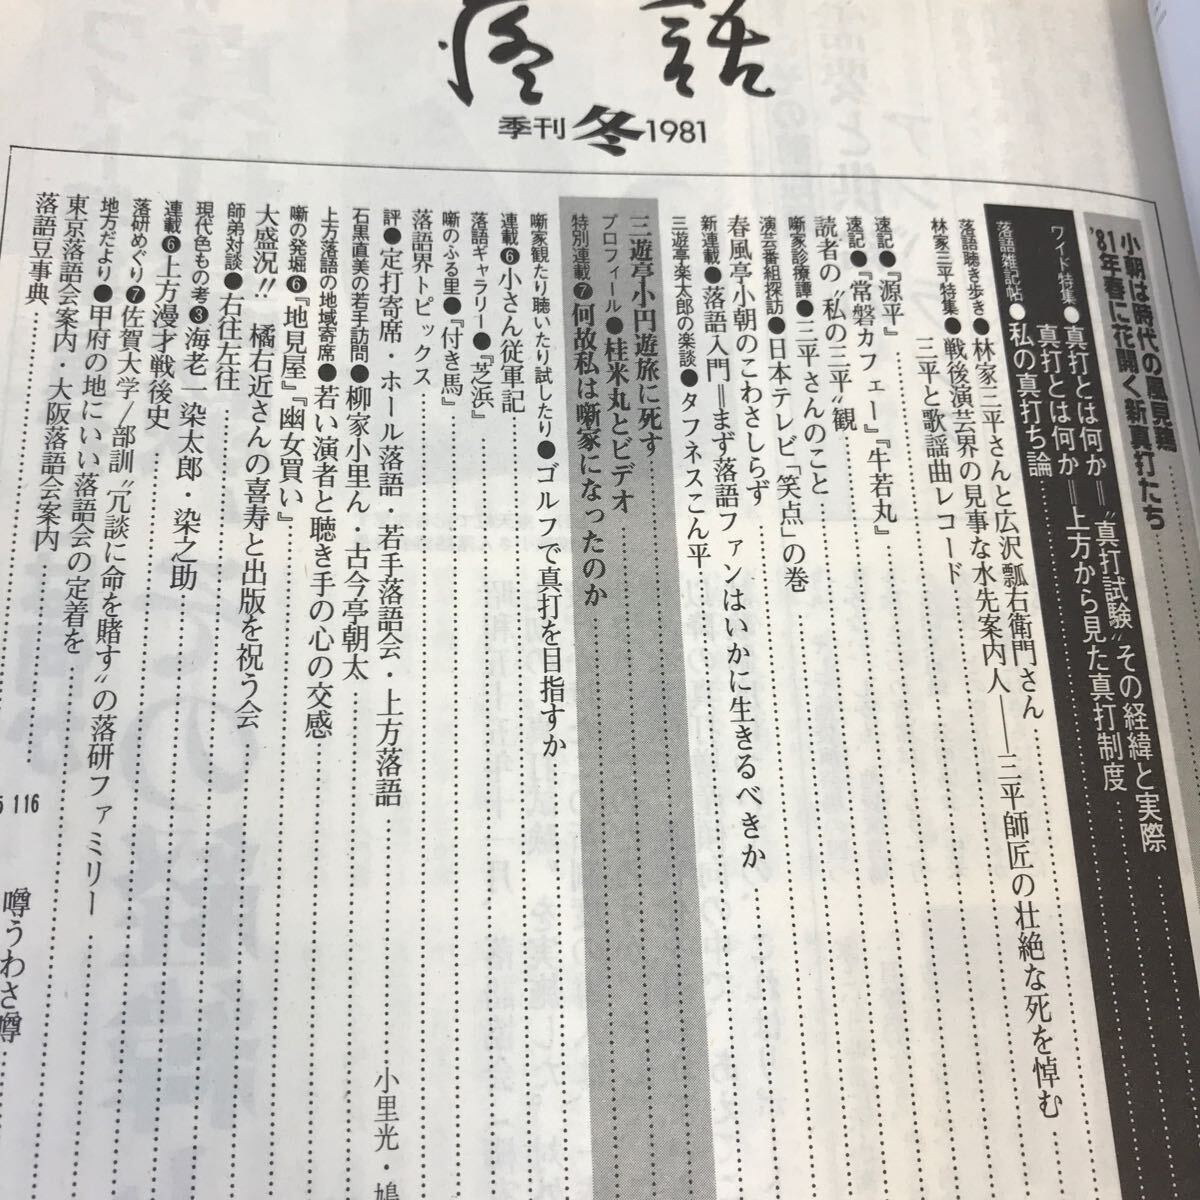 落話
季刊 冬 1981
小朝は時代の風見鶏
'81年春に花開く新真打たち
ワイド特集●真打とは何か＝〝真打試験〟その経緯と実際
真打とは何か＝上方から見た真打制度
落語雑記帖●私の真打ち論
落語聴き歩き●林家三平さんと広沢瓢右衛門さん
林家三平特集●戦後演芸界の見事な水先案内人――三平師匠の壮絶な死を悼む
三平と歌謡曲レコード
速記●『源平』
速記●『常磐カフェー』『牛若丸』
読者の〝私の三平〟観
噺家診療譚●三平さんのこと
演芸番組探訪●日本テレビ「笑点」の巻
春風亭小朝のこわさしらず
新連載●落語入門＝まず落語ファンはいかに生きるべきか
三遊亭楽太郎の楽談●タフネスこん平
三遊亭小円遊旅に死す
プロフィール●桂米丸とビデオ
特別連載❼何故私は噺家になったのか
噺家観たり聴いたり試したり●ゴルフで真打を目指すか
連載❻小さん従軍記
落語ギャラリー●『芝浜』
噺のふる里●『付き馬』
落語界トピックス
評●定打寄席・ホール落語・若手落語会・上方落語
石黒直美の若手訪問●柳家小里ん・古今亭朝太
上方落語の地域寄席●若い演者と聴き手の心の交感
噺の発堀❻『地見屋』『幽女買い』
大盛況!! 橘右近さんの喜寿と出版を祝う会
師弟対談●右往左往
現代色もの考❸海老一染太郎・染之助
連載❻上方漫才戦後史
落研めぐり❼佐賀大学／部訓〝冗談に命を賭す〟の落研ファミリー
地方だより●甲府の地にいい落語会の定着を
東京落語会案内・大阪落語会案内
落語豆事典
116
噂うわさ噂
小里光・鳩